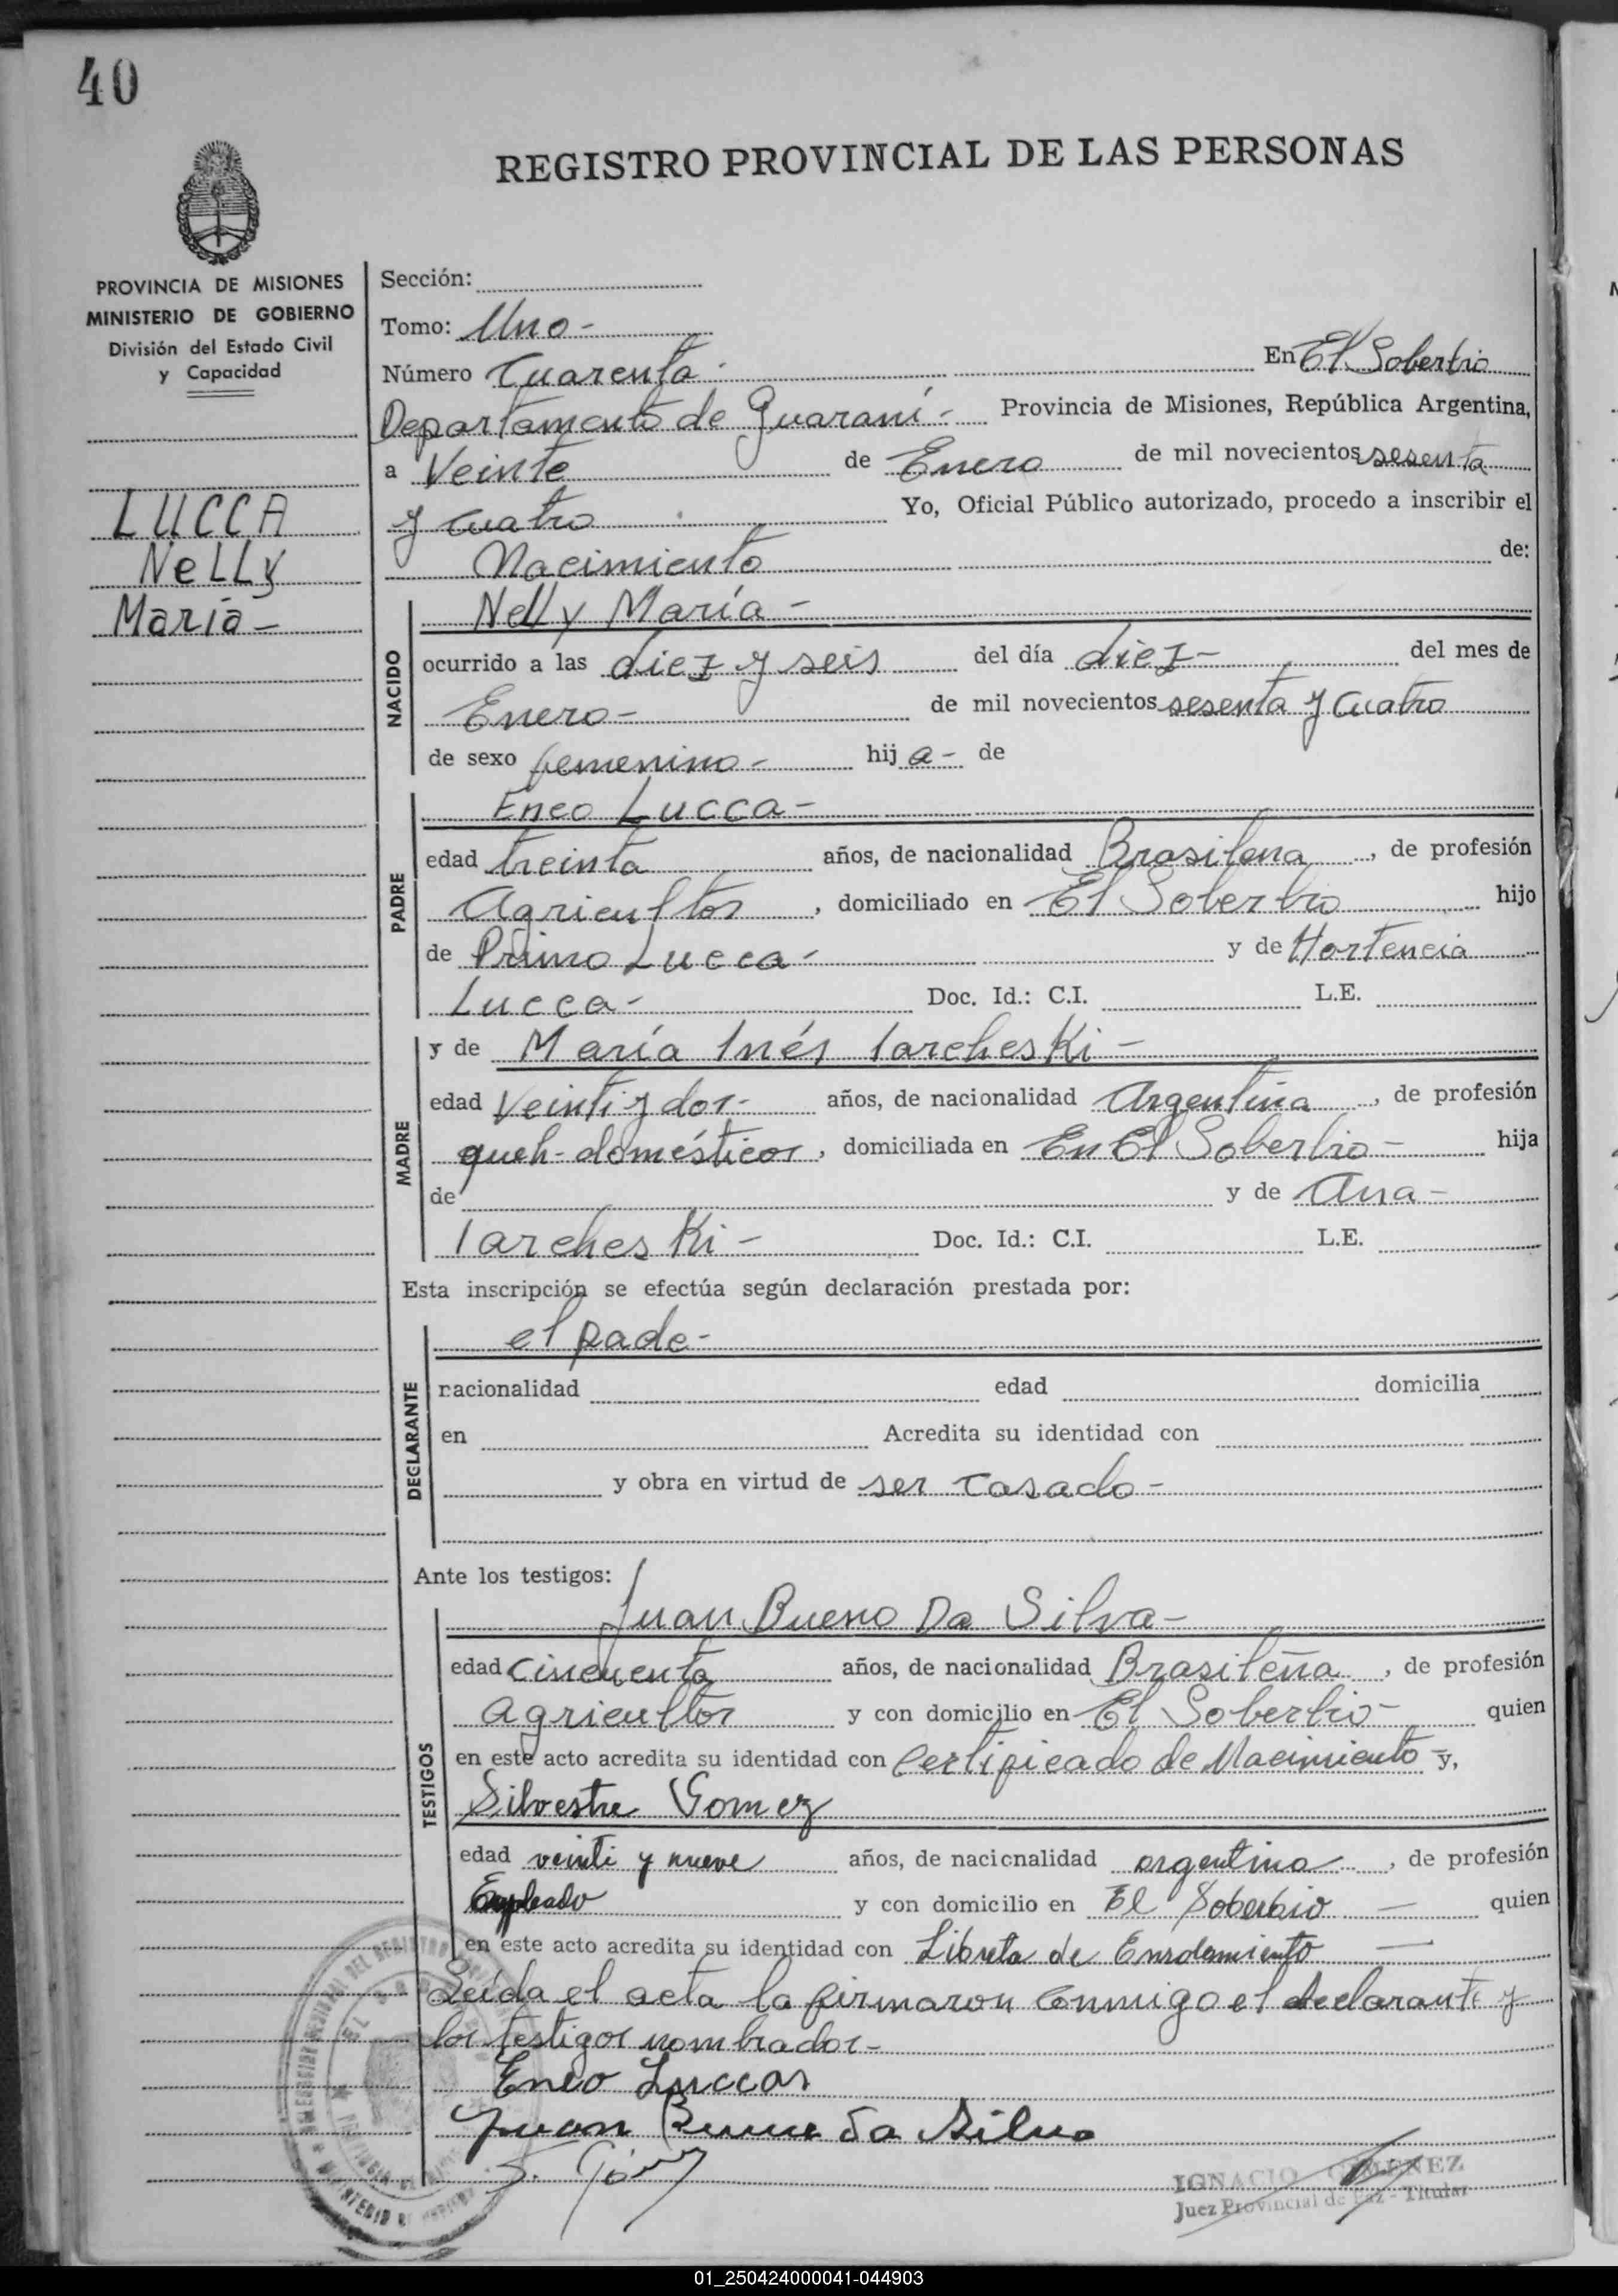 40
REGISTRO PROVINCIAL DE LAS PERSONAS
PROVINCIA DE MISIONES
MINISTERIO DE GOBIERNO
División del Estado Civil
y Capacidad
LUCCA
NeLLy
María-
Sección:
Tomo: Uno-
Número Cuarenta- En El Soberbio
Departamento de Guaraní- Provincia de Misiones, República Argentina,
a Veinte de Enero de mil novecientos sesenta
y cuatro Yo, Oficial Público autorizado, procedo a inscribir el
Nacimiento de:
NACIDO
Nelly María-
ocurrido a las diez y seis del día diez- del mes de
Enero- de mil novecientos sesenta y cuatro
de sexo femenino- hij a- de
PADRE
Eneo Lucca-
edad treinta años, de nacionalidad Brasilena, de profesión
Agricultor, domiciliado en El Soberbio hijo
de Primo Lucca- y de Hortencia
Lucca- Doc. Id.: C.I. L.E.
MADRE
y de María Inés Iarcheski-
edad Veinti y dos- años, de nacionalidad Argentina, de profesión
queh-domésticos, domiciliada en En El Soberbio- hija
de y de Ana-
Iarcheski- Doc. Id.: C.I. L.E.
Esta inscripción se efectúa según declaración prestada por:
DECLARANTE
el pade-
nacionalidad edad domicilia
en Acredita su identidad con
y obra en virtud de ser casado-
Ante los testigos:
TESTIGOS
Juan Bueno Da Silva-
edad cincuenta años, de nacionalidad Brasileña, de profesión
agricultor y con domicilio en El Soberbio- quien
en este acto acredita su identidad con Certificado de Nacimiento- y,
Silvestre Gomez
edad veinti y nueve años, de nacionalidad argentina, de profesión
Empleado y con domicilio en El Soberbio — quien
en este acto acredita su identidad con Libreta de Enrolamiento —
Leída el acta la firmaron conmigo el declarante y
los testigos nombrados-
Eneo Luccas
Juan Bueno da Silva
S. Góm
IGNACIO GIMENEZ
Juez Provincial de Paz - Titular
01_250424000041-044903